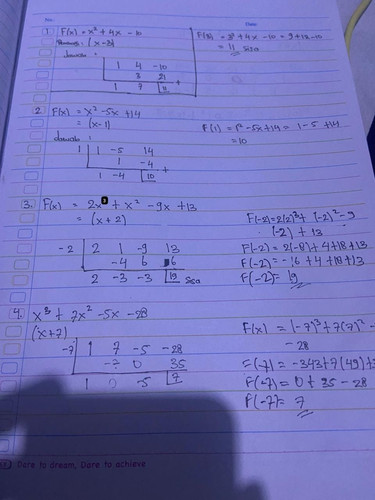 No.
Date
1. F(x) = x² + 4x - 10
(x-3)
F(3) = 3² + 4x - 10 = 9+12-10
= 11 Sisa
Jawab :
1 4 -10
3 21 +
1 7 11
2. F(x) = x² - 5x + 14
= (x-1)
F(1) = 1² - 5x + 14 = 1 - 5 + 14
= 10
Jawab :
1 1 -5 14
1 -4 +
1 -4 10
3. F(x) = 2x³ + x² - 9x + 13
= (x+2)
F(-2) = 2(2)³ + (-2)² - 9
(-2) + 13
-2 2 1 -9 13
F(-2) = 2(-8) + 4 + 18 + 13
-4 6 6
F(-2) = -16 + 4 + 18 + 13
2 -3 -3 19 Sisa
F(-2) = 19
4. x³ + 7x² - 5x - 28
(x+7)
F(x) = (-7)³ + 7(7)² -
- 28
-7 1 7 -5 -28
F(-7) = -343 + 7(49) +
-7 0 35
F(-7) = 0 + 35 - 28
1 0 -5 7
F(-7) = 7
Dare to dream, Dare to achieve